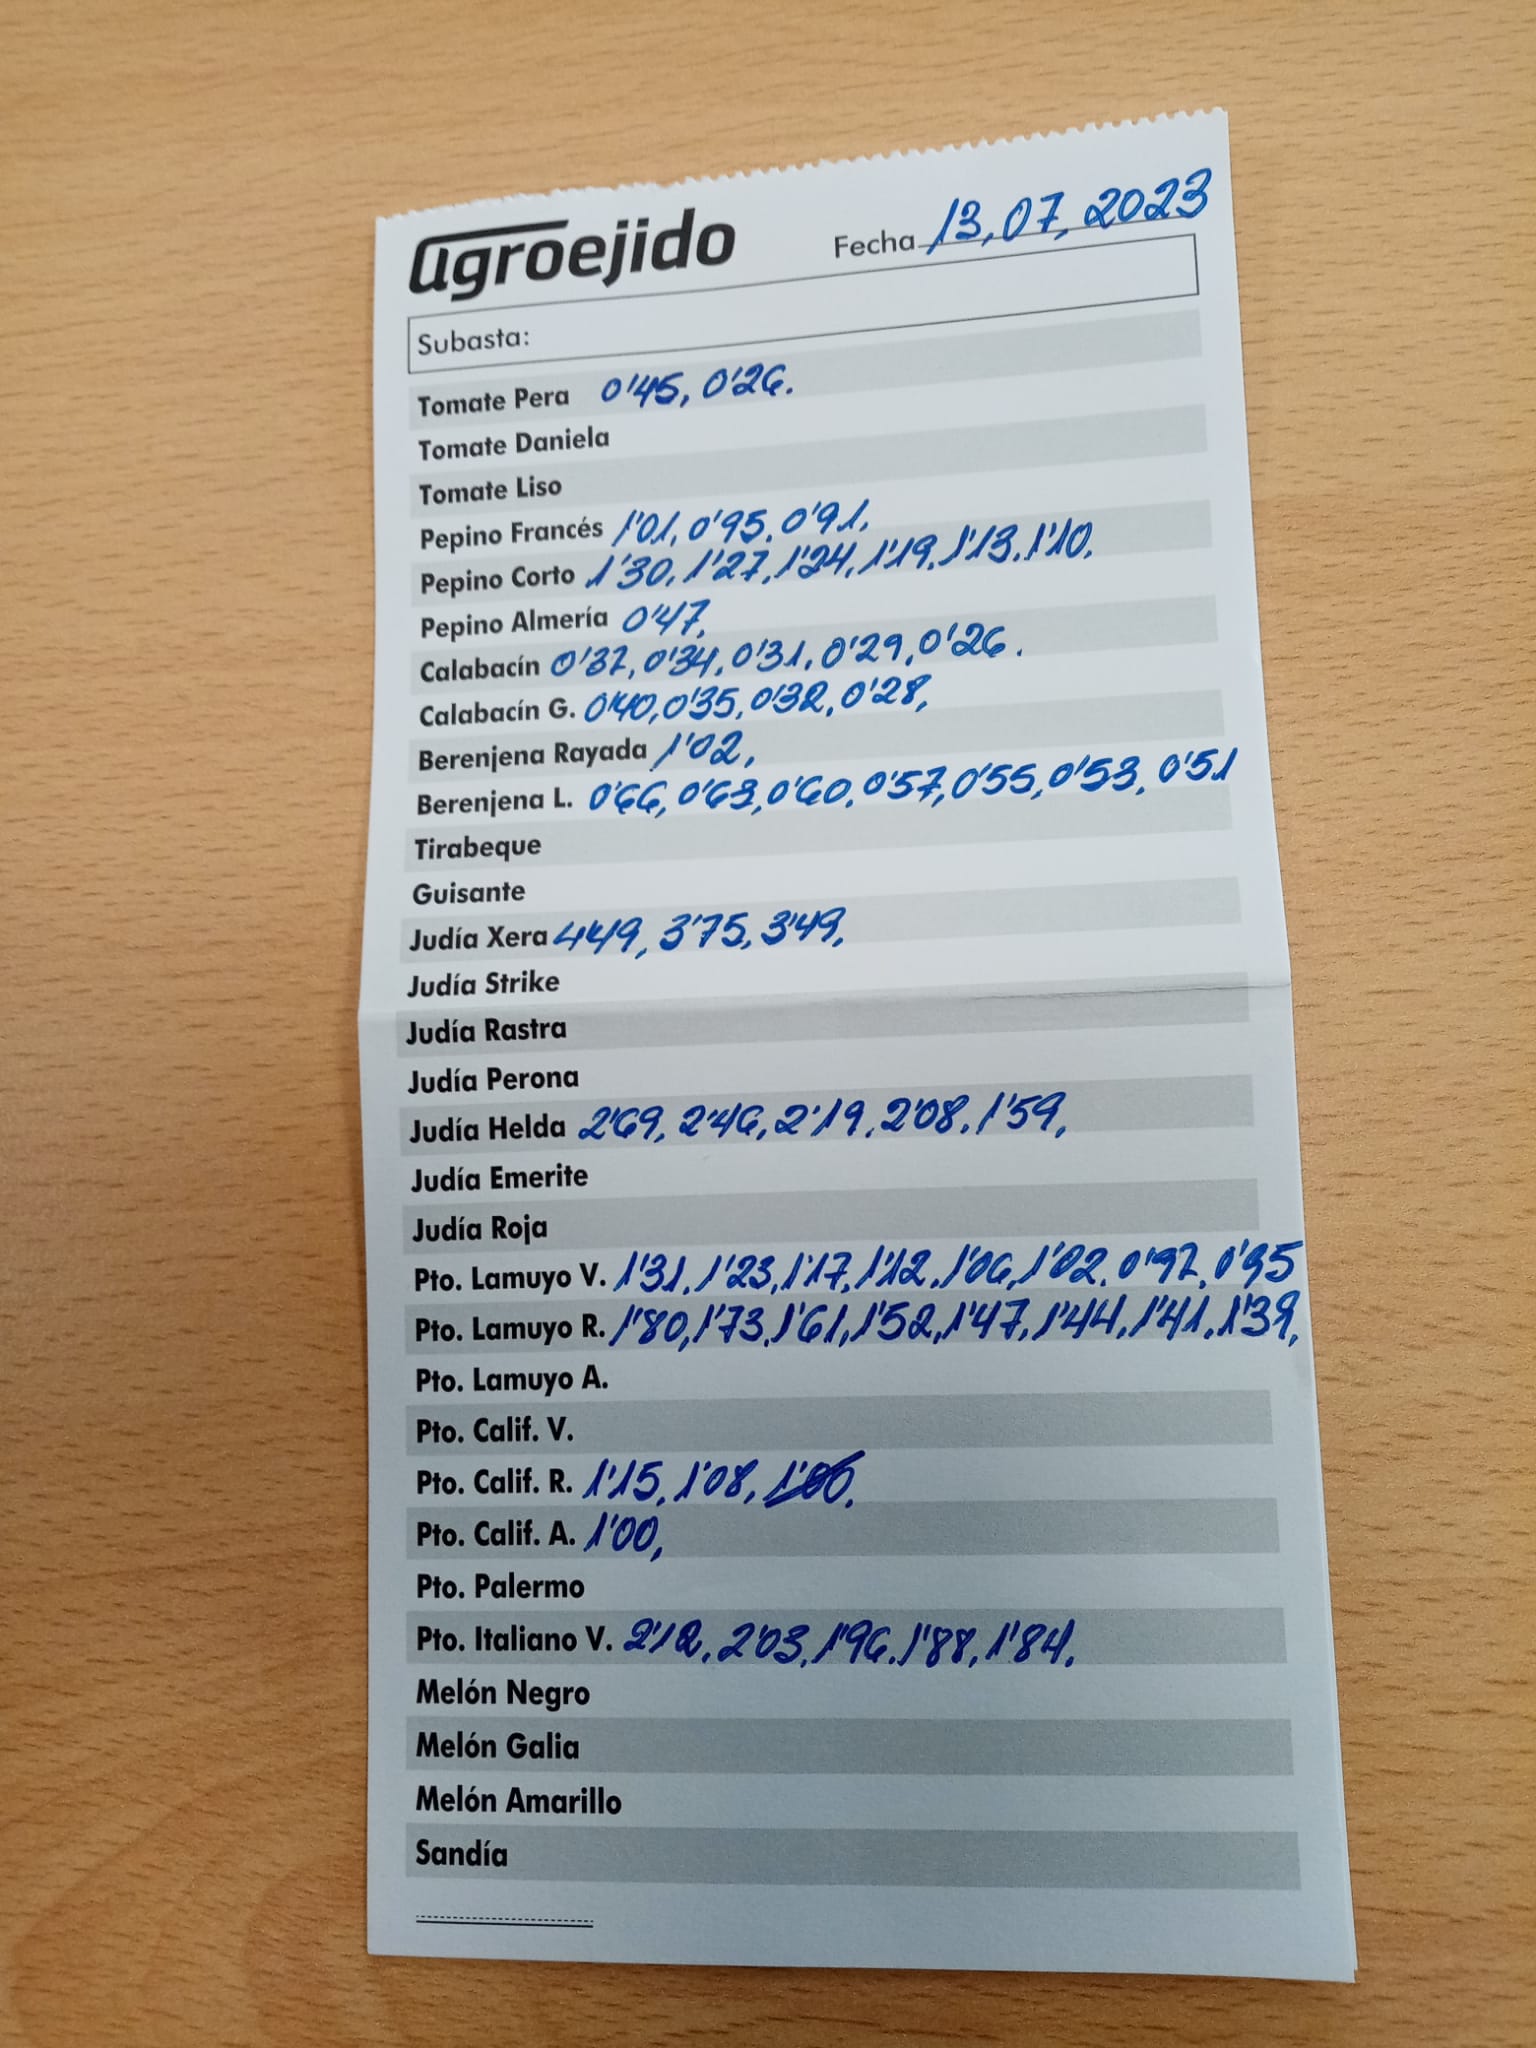 agroejido
Fecha 13,07,2023
Subasta:
Tomate Pera 0'45, 0'26.
Tomate Daniela
Tomate Liso
Pepino Francés 1'01, 0'95, 0'91,
Pepino Corto 1'30, 1'27, 1'24, 1'19, 1'13, 1'10,
Pepino Almería 0'47,
Calabacín 0'37, 0'34, 0'31, 0'29, 0'26.
Calabacín G. 0'40, 0'35, 0'32, 0'28,
Berenjena Rayada 1'02,
Berenjena L. 0'66, 0'63, 0'60, 0'57, 0'55, 0'53, 0'51
Tirabeque
Guisante
Judía Xera 4'49, 3'75, 3'49,
Judía Strike
Judía Rastra
Judía Perona
Judía Helda 2'69, 2'46, 2'19, 2'08, 1'59,
Judía Emerite
Judía Roja
Pto. Lamuyo V. 1'31, 1'23, 1'17, 1'12, 1'06, 1'02, 0'97, 0'95
Pto. Lamuyo R. 1'80, 1'73, 1'61, 1'52, 1'47, 1'44, 1'41, 1'39,
Pto. Lamuyo A.
Pto. Calif. V.
Pto. Calif. R. 1'15, 1'08,
Pto. Calif. A. 1'00,
Pto. Palermo
Pto. Italiano V. 2'12, 2'03, 1'96, 1'88, 1'84,
Melón Negro
Melón Galia
Melón Amarillo
Sandía